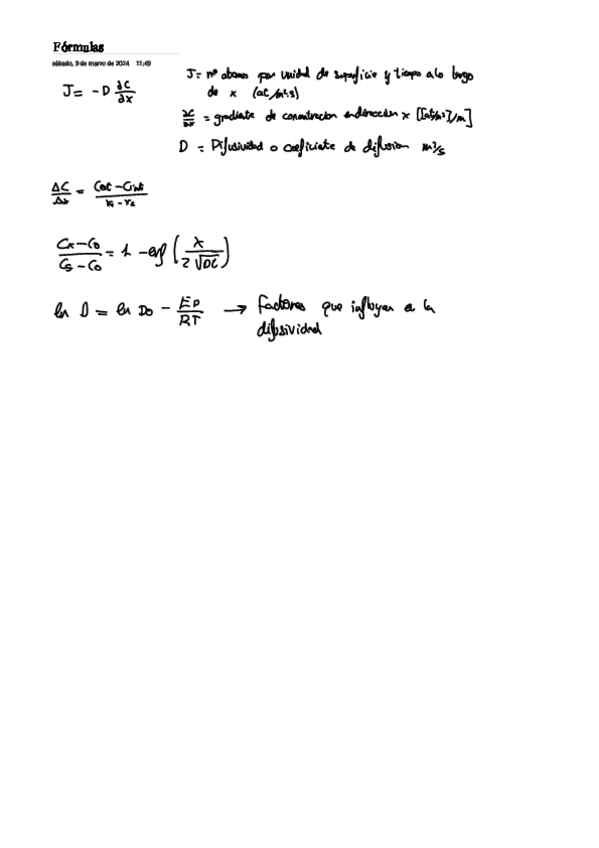 Fórmulas
sábado, 9 de marzo de 2024 11:49
J = -D ∂C/∂x
J = nº átomos por unidad de superficie y tiempo a lo largo
de x (at/m²·s)
∂C/∂x = gradiente de concentración en dirección x [[at/m³]/m]
D = Difusividad o coeficiente de difusion m²/s
ΔC/Δx = /
Cx-C0/Cs-C0 = 1 - erf (x/2√Dt)
ln D = ln D0 - ED/RT → Factores que influyen a la
difusividad